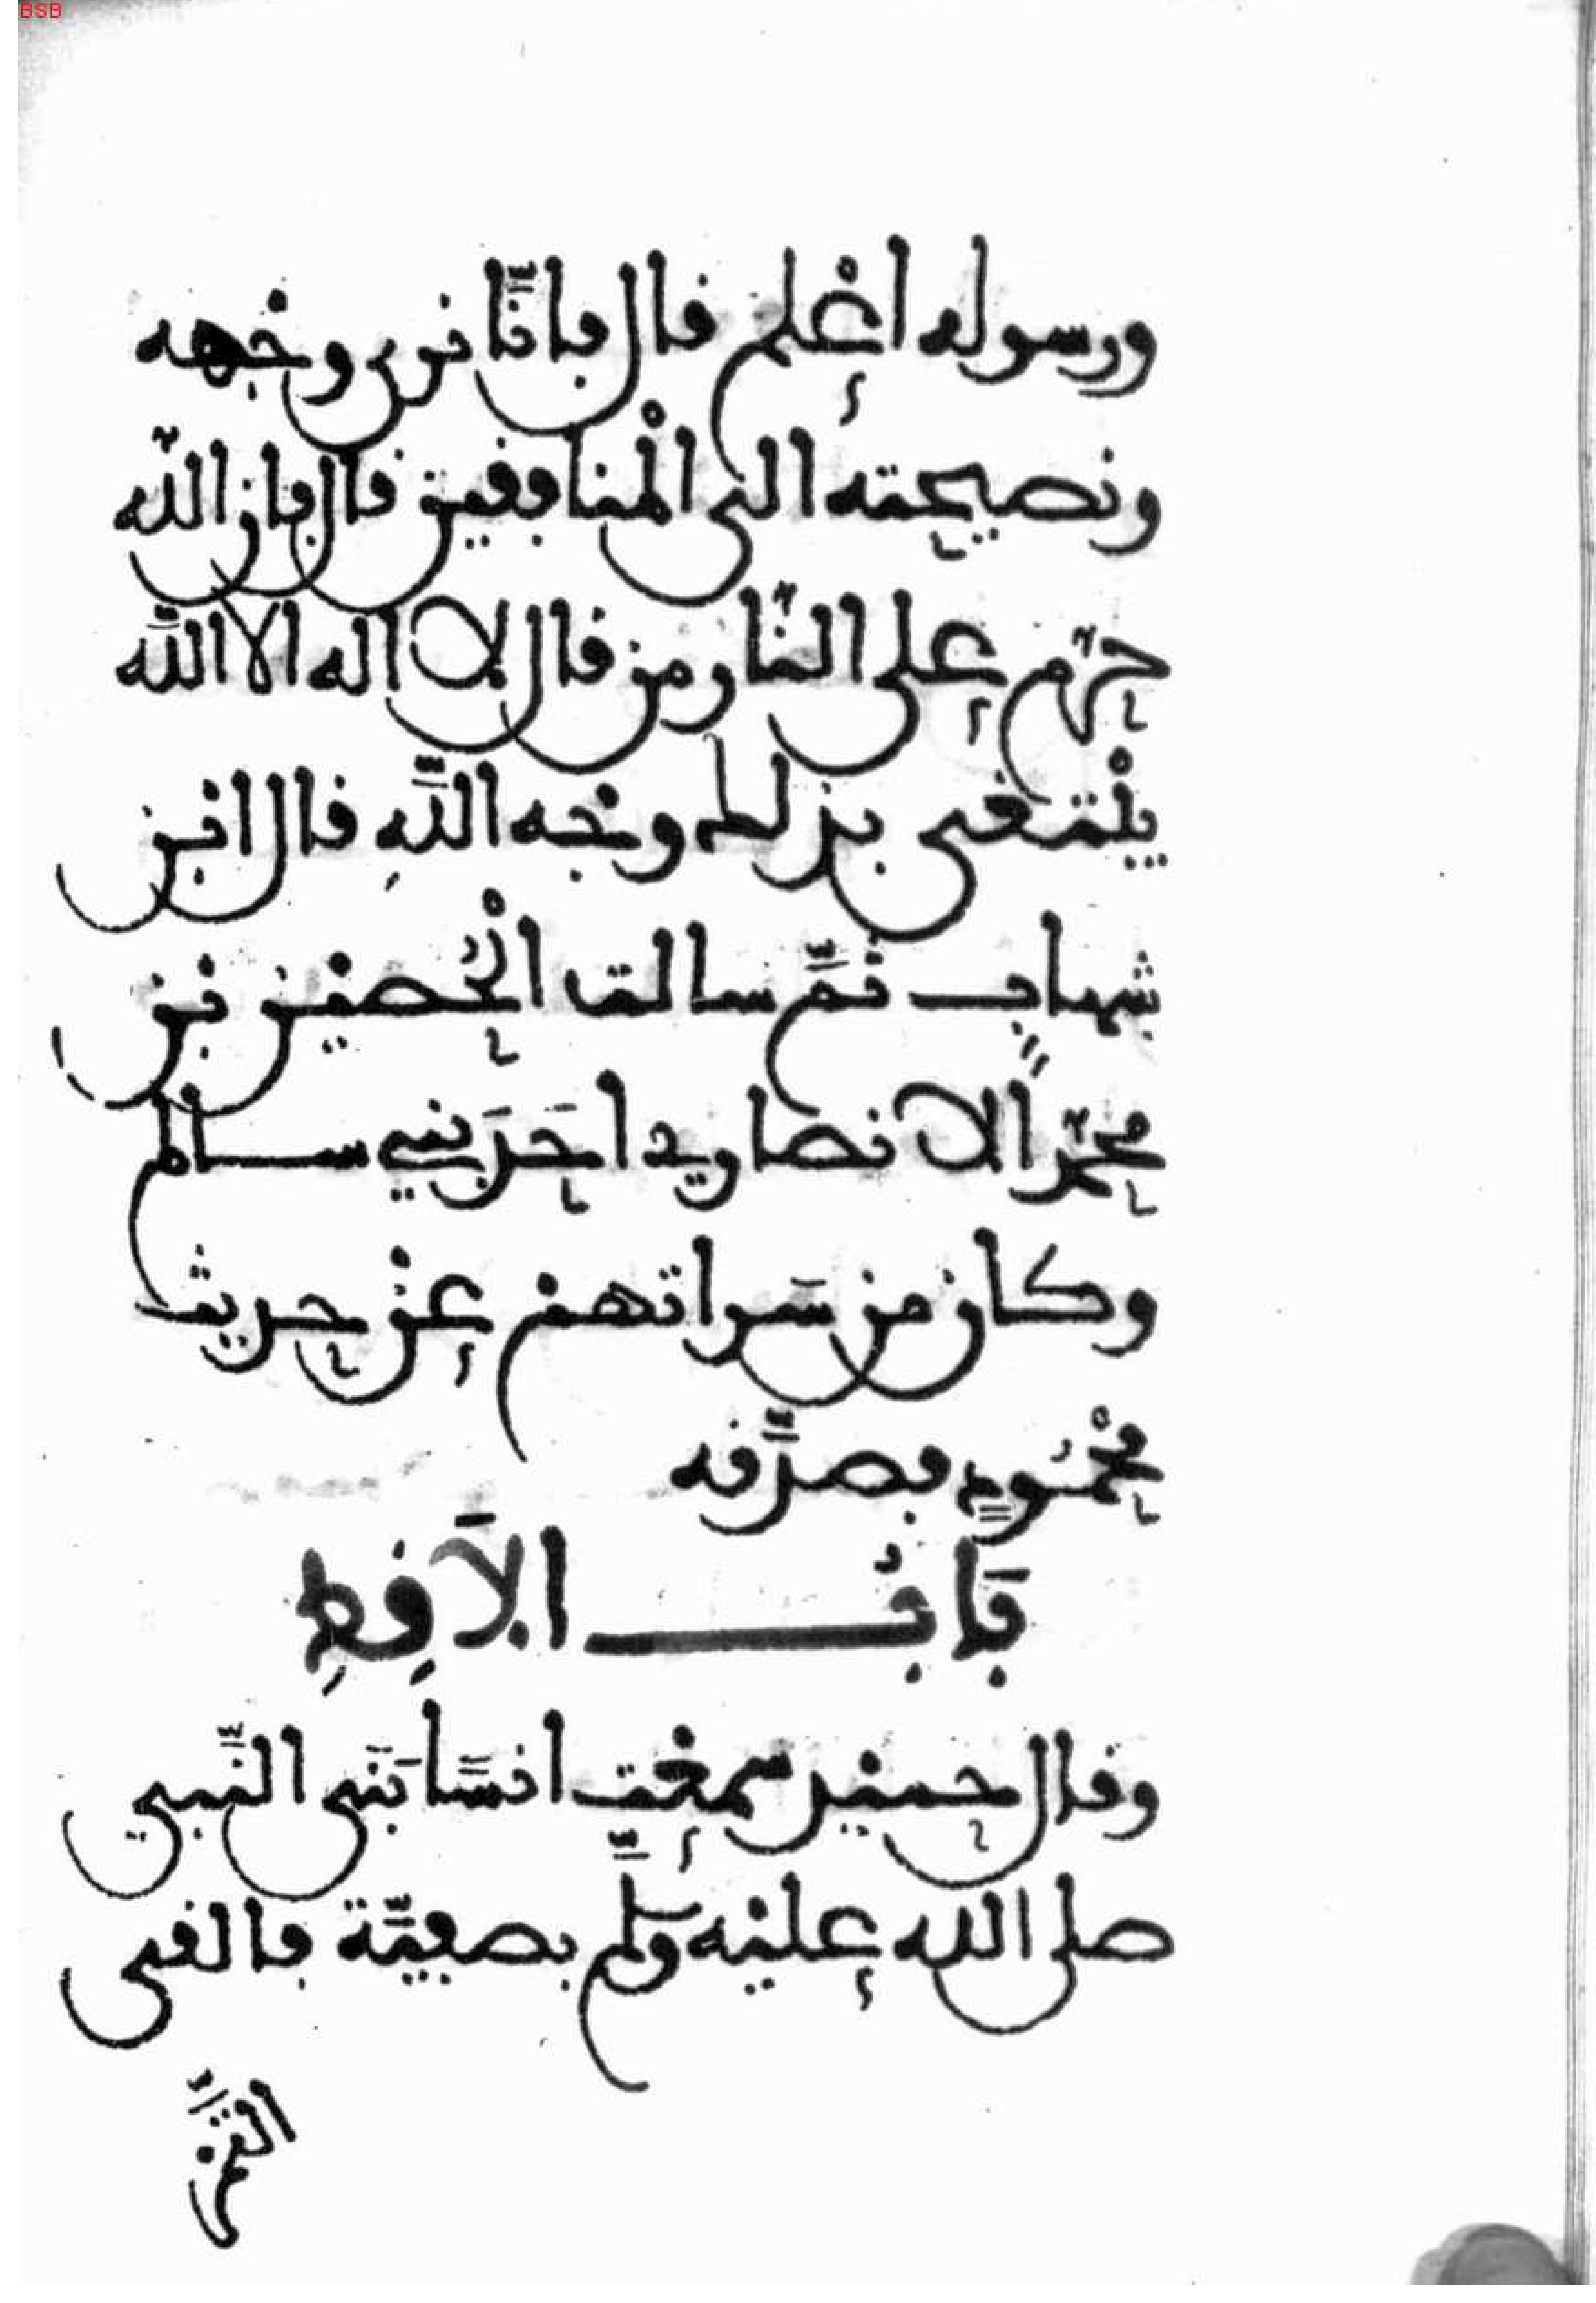 BSB
ورسوله اعْلم قال فانَّا نرى وجْهه
ونصيحته الى الْمنافقين قال فان الله
حرّم على النّار من قال لا اله الا الله
يبْتغى بذلك وجْه اللَّهِ قال ابْن
شهابٍ ثمَّ سالت الْحُصيْن بْن
محمّدٍ الانصارى احَدَ بَنِي سالم
وكان من سَراتهمْ عنْ حديث
محْمُودٍ فصدَّقه
بَابُ الاَقِطِ
وقال حميْد سمعْت انسًا بَنَى النَّبى
صلى الله عليْه وسلَّم بصفيَّة فالقى
التَّمْر